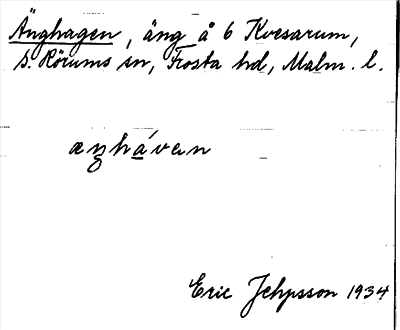 Änghagen, äng å 6 Kvesarum,
S. Rörums sn, Frosta hd, Malm. l.
æŋhávan
Eric Jehpsson 1934